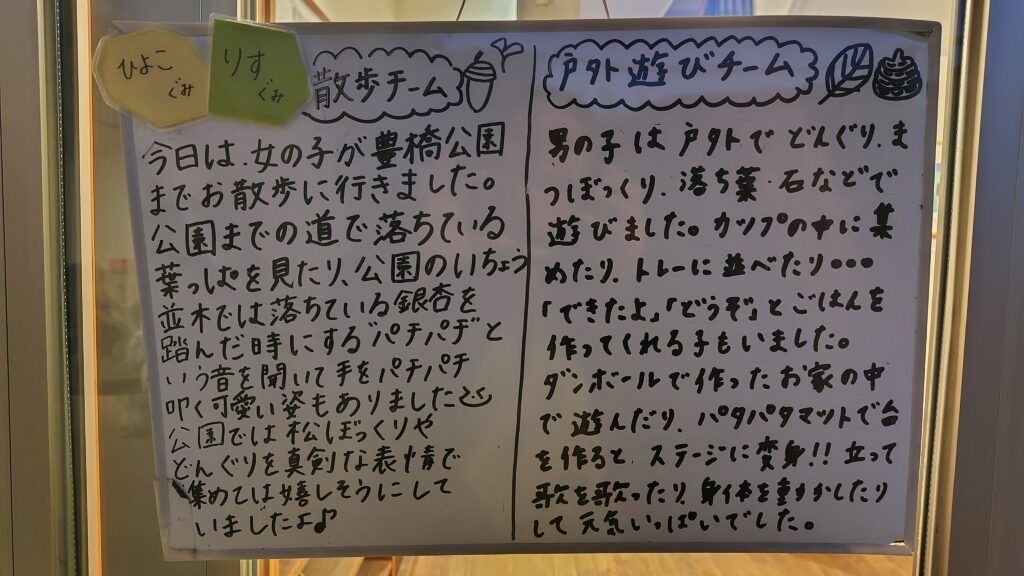 ひよこ
ぐみ
りす
ぐみ
散歩チーム
今日は、女の子が豊橋公園
までお散歩に行きました。
公園までの道で落ちている
葉っぱを見たり、公園のいちょう
並木では落ちている銀杏を
踏んだ時にする"パチパチ"と
いう音を聞いて手をパチパチ
叩く可愛い姿もありました
公園では松ぼっくりや
どんぐりを真剣な表情で
集めては嬉しそうにして
いましたよ♪
戸外遊びチーム
男の子は戸外でどんぐり、ま
つぼっくり、落ち葉・石などで
遊びました。カップの中に集
めたり、トレーに並べたり•••
「できたよ」「どうぞ」とごはんを
作ってくれる子もいました。
ダンボールで作ったお家の中
で遊んだり、パタパタマットで台
を作ると、ステージに変身!! 立って
歌を歌ったり、身体を動かしたり
して元気いっぱいでした。